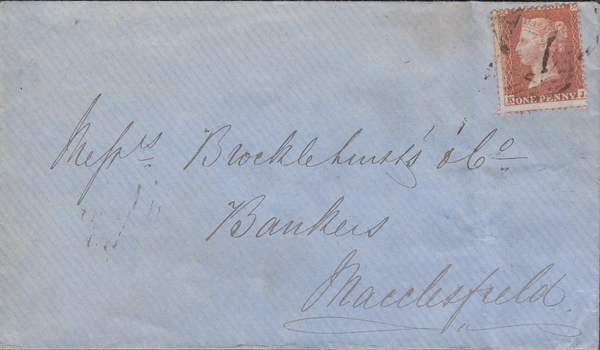 K ONE PENNY J
Messrs Brocklehursts & Co
Bankers
Macclesfield